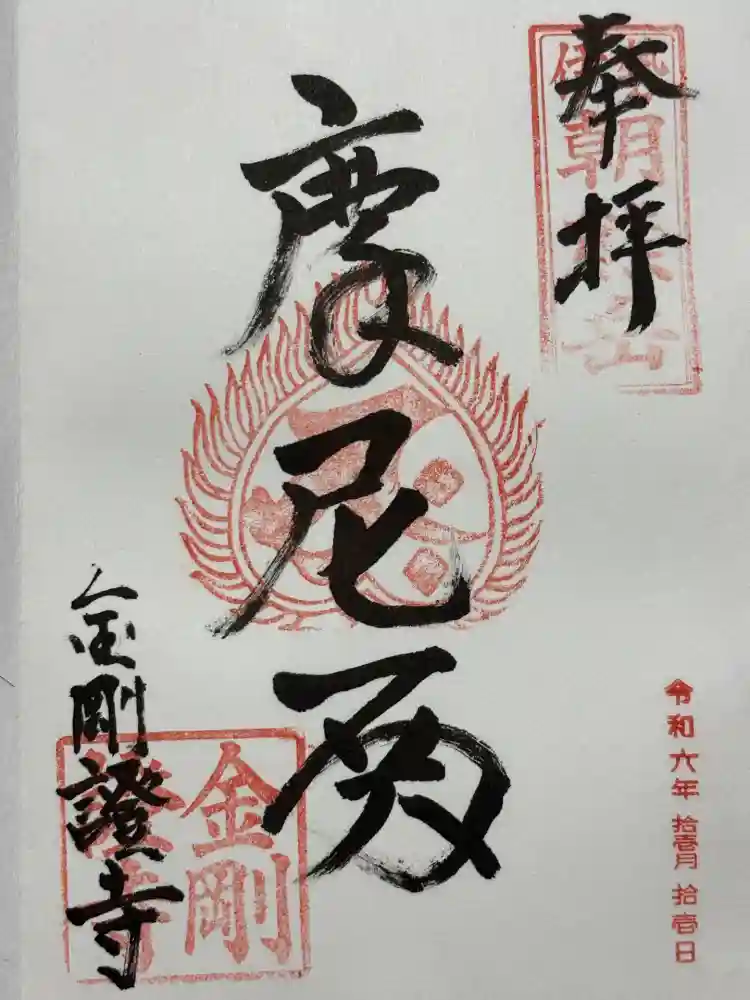 奉拝
伊勢朝熊岳
令和六年拾壱月拾壱日
摩尼
金剛證寺
金剛
證寺